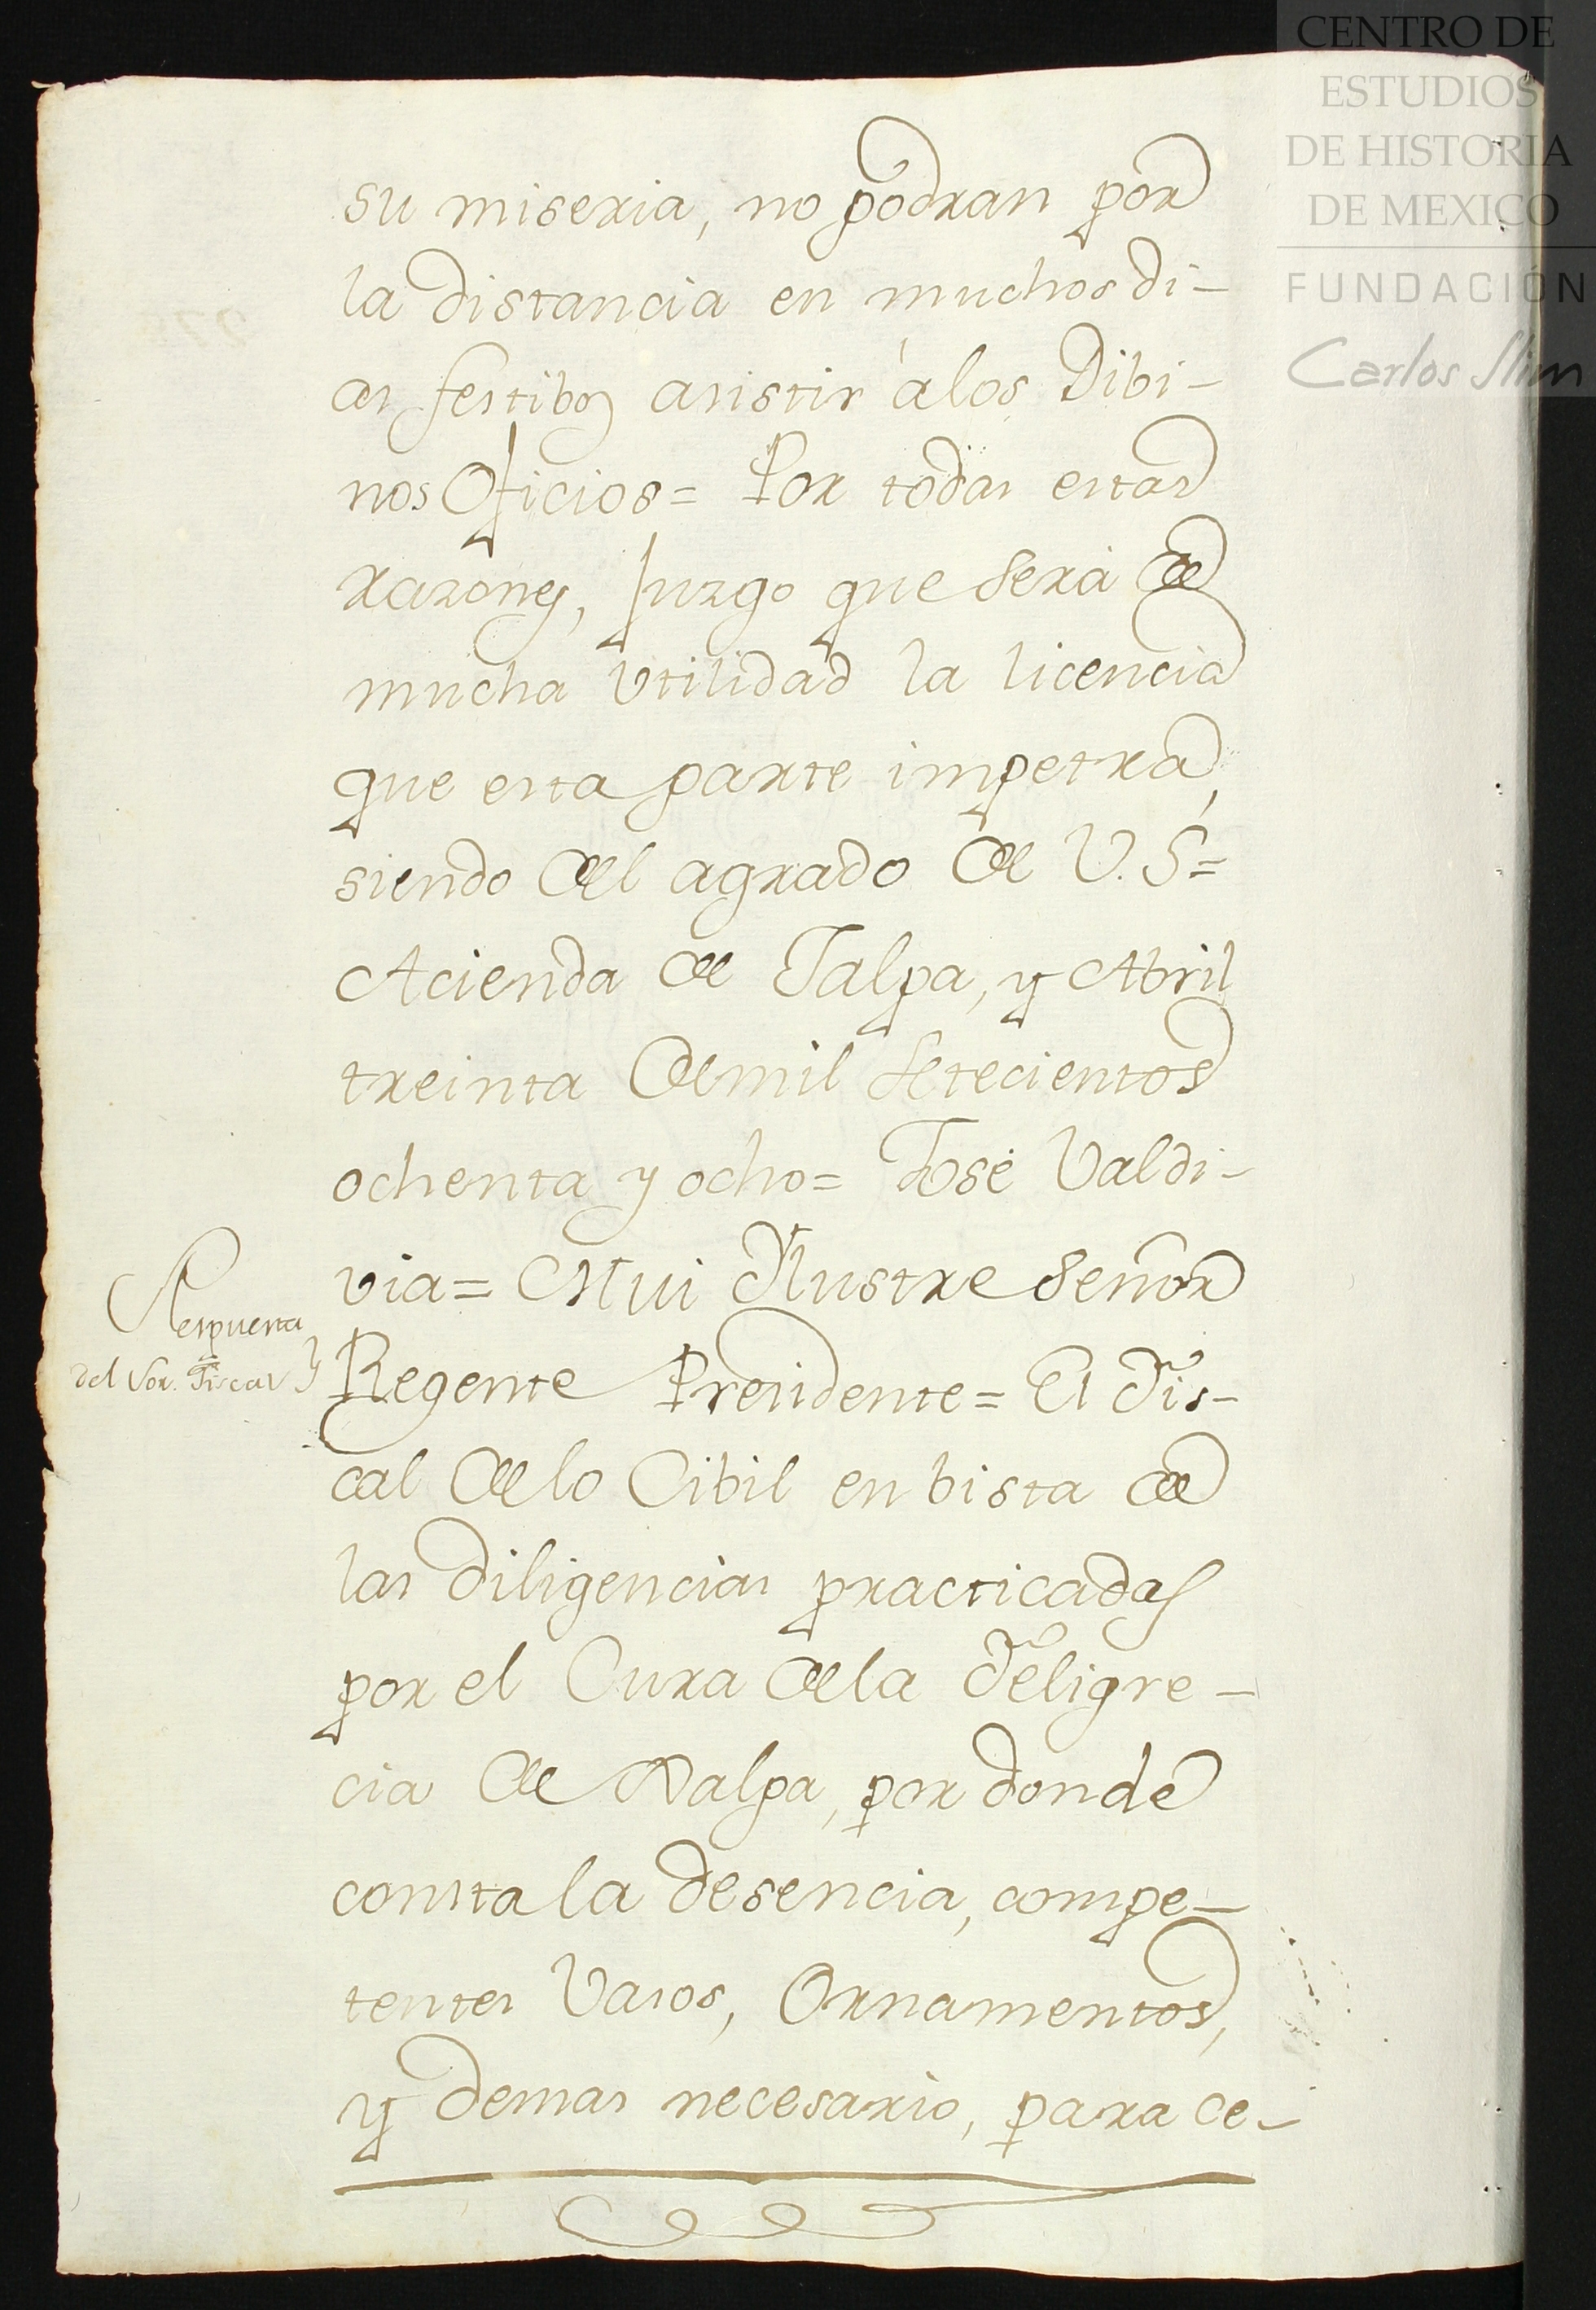 CENTRO DE
ESTUDIOS
DE HISTORIA
DE MEXICO
FUNDACIÓN
Carlos Slim
su miseria, no podran por
la distancia en muchos di-
as festibos asistir á los Dibi-
nos Oficios= Por todas estas
razones, Juzgo que será de
mucha Utilidad la licencia
que esta parte impetra,
siendo del agrado de V. S=
Acienda de Talpa, y Abril
treinta de mil Setecientos
ochenta y ocho= José Valdi-
via= Mui Ilustre Señor
Respuesta
del Sor. Fiscal
Regente Presidente= El Fis-
cal de lo Cibil en bista de
las diligencias practicadas
por el Cura de la Feligre-
cia de Xalpa, por donde
consta la desencia, compe-
tentes Vasos, Ornamentos,
y demas necesario, para ce-